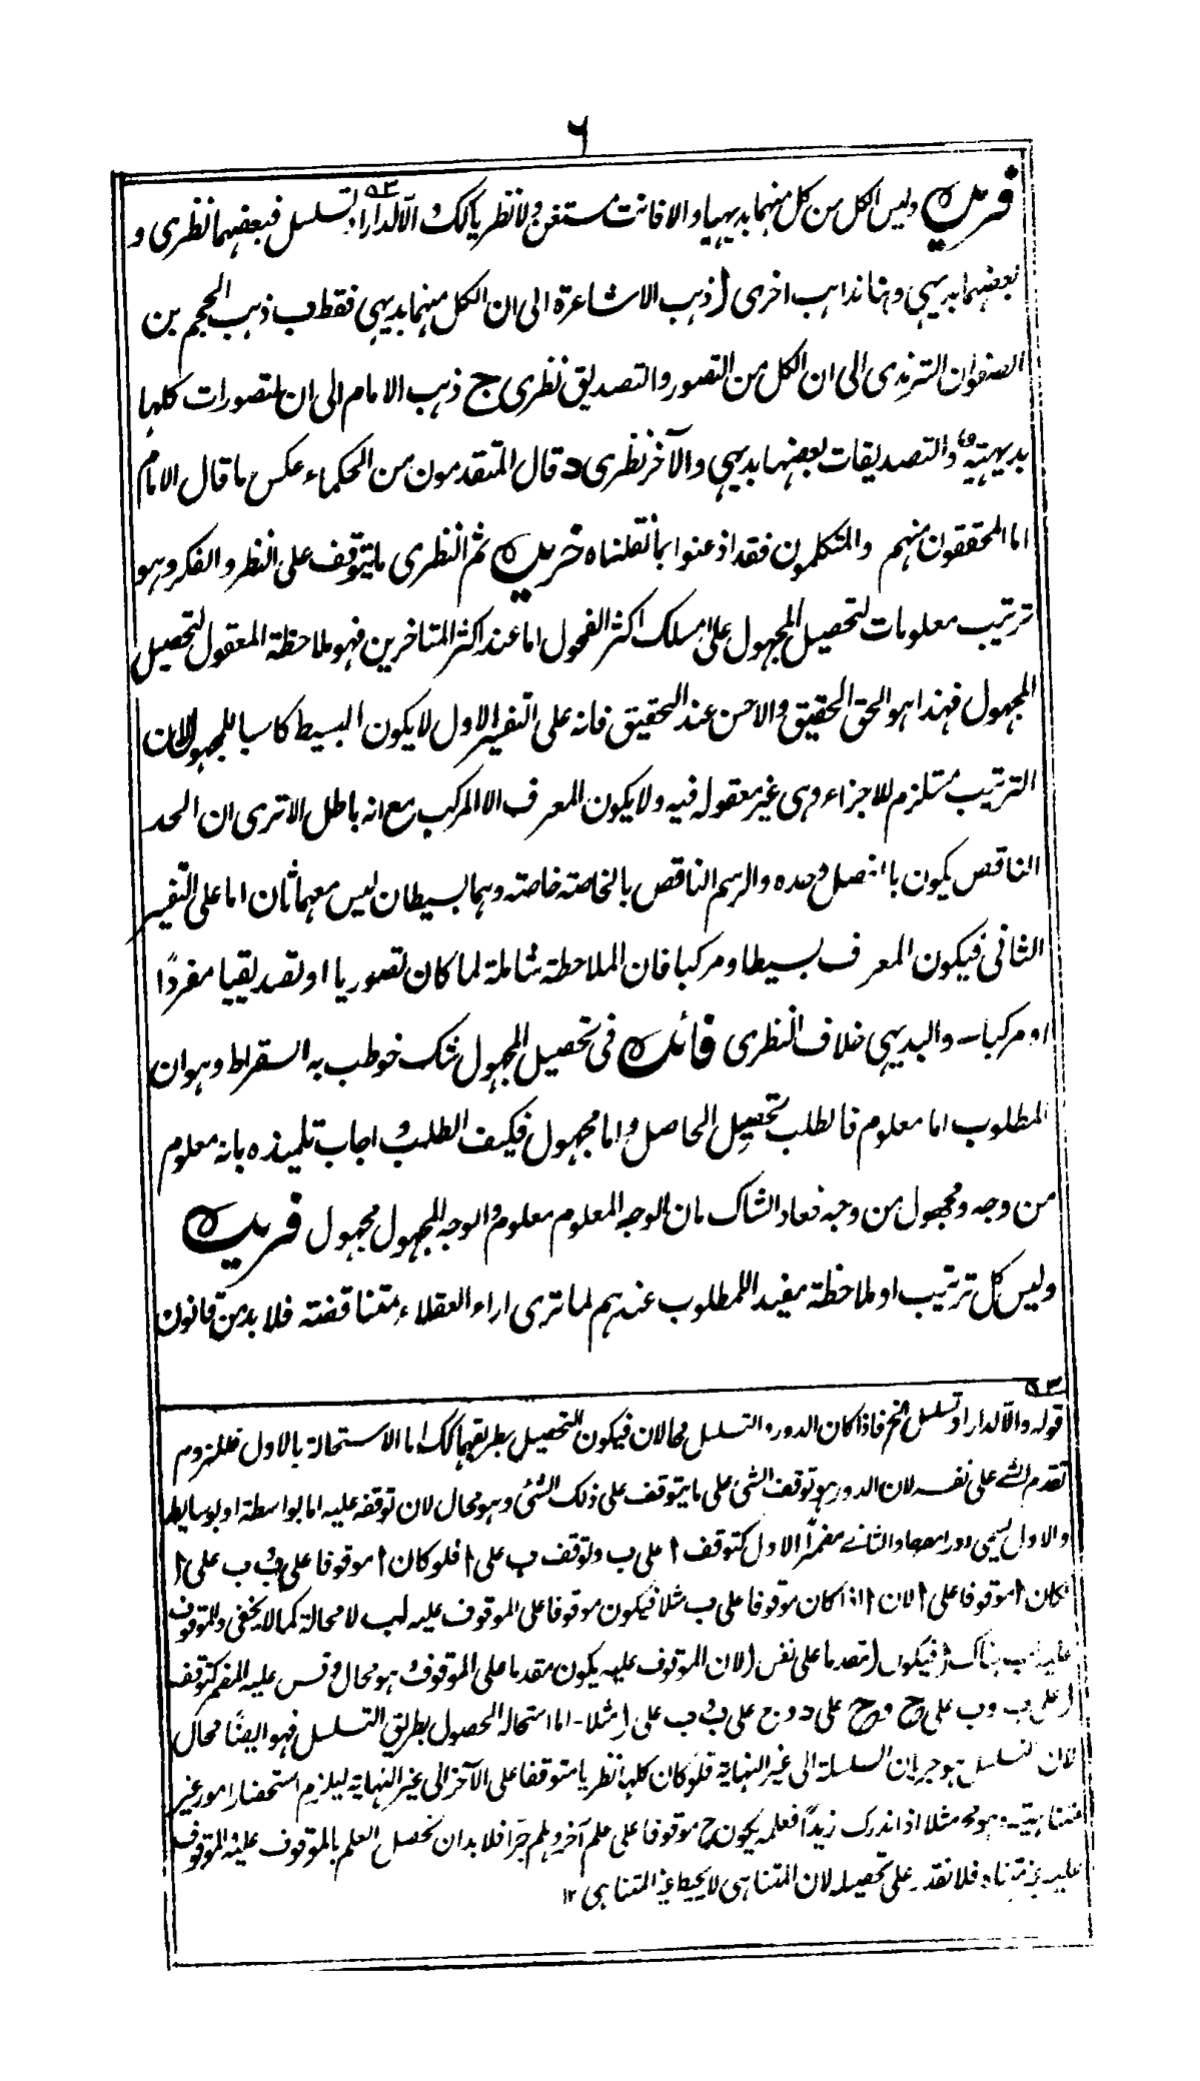 ٦
فريدة وليس الكل من كل منهما بديهيا والا فانت مستغن ولا نظريا كذلك والا لدار او تسلسل فبعضهما نظرى و
بعضهما بديهى وهنا مذاهب اخرى ا ذهب الاشاعرة الى ان الكل منهما بديهى فقط ب ذهب الجهم بن
الصفوان الترمذى الى ان الكل من التصور والتصديق نظرى ج ذهب الامام الى ان التصورات كلها
بديهية والتصديقات بعضها بديهى والآخر نظرى د قال المتقدمون من الحكماء عكس ما قال الامام
اما المحققون منهم والمتكلمون فقد اذعنوا بما نقلناه خريدة ثم النظرى ما يتوقف على النظر والفكر وهو
ترتيب معلومات لتحصيل المجهول على مسلك اكثر الفحول اما عند اكثر المتاخرين فهو ملاحظة المعقول لتحصيل
المجهول فهذا هو الحق الحقيق والاحسن عند التحقيق فانه على التفسير الاول لا يكون البسيط كاسبا للمجهول لان
الترتيب مستلزم للاجزاء وهى غير معقولة فيه ولا يكون المعرف الا المركب مع انه باطل الا ترى ان الحد
الناقص يكون بالفصل وحده والرسم الناقص بالخاصة خاصة وهما بسيطان ليس معهما ثان اما على التفسير
الثانى فيكون المعرف بسيطا ومركبا فان الملاحظة شاملة لما كان تصوريا او تصديقيا مفردًا
او مركبا ـ والبديهى خلاف النظرى فائدة فى تحصيل المجهول شك خوطب به السقراط وهو ان
المطلوب اما معلوم فالطلب تحصيل الحاصل واما مجهول فكيف الطلب واجاب تلميذه بانه معلوم
من وجه ومجهول من وجه فعاد الشاك بان الوجه المعلوم معلوم والوجه المجهول مجهول فريدة
وليس كل ترتيب او ملاحظة مفيدا للمطلوب عندهم لما ترى اراء العقلاء متناقضة فلا بد من قانون
قوله والا لدار او تسلسل الخ فاذا كان الدور والتسلسل محالان فيكون التحصيل بطريقهما كذلك اما الاستحالة بالاول فللزوم
تقدم الشے على نفسه لان الدور هو توقف الشئ على ما يتوقف على ذلك الشئ وهو محال لان توقفه عليه اما بواسطة او بوسائط
والاول يسمى دورا مصرحا والثانے مضمرًا الاول كتوقف ا على ب وتوقف ب على ا فلو كان ا موقوفا على ب و ب على ا
لكان ا موقوفا على ا لان ا اذا كان موقوفا على ب مثلا فيكون موقوفا على الموقوف عليه لب لا محالة كما لا يخفى والموقوف
عليه لب هناك ا فيكون ا متقدما على نفس ا لان الموقوف عليه يكون مقدما على الموقوف وهو محال وقس عليه المضمر كتوقف
ا على ب وب على ج وج على د ود على ب وب على ا مثلا ـ اما استحالة الحصول بطريق التسلسل فهو ايضًا محال
لان التسلسل هو جريان السلسلة الى غير النهاية فلو كان كلها نظريا متوقفا على الآخر الى غير النهاية ليلزم استحضار امور غير
متناهية وهو مح مثلا اذا ندرك زيدًا فعلمه يكون ح موقوفا على علم آخر وهلم جرّا فلا بد ان نحصل العلم بالموقوف عليه الموقوف
عليه غير متناه فلا نقدر على تحصيله لان المتناهى لا يحيط غير المتناهى ١٢